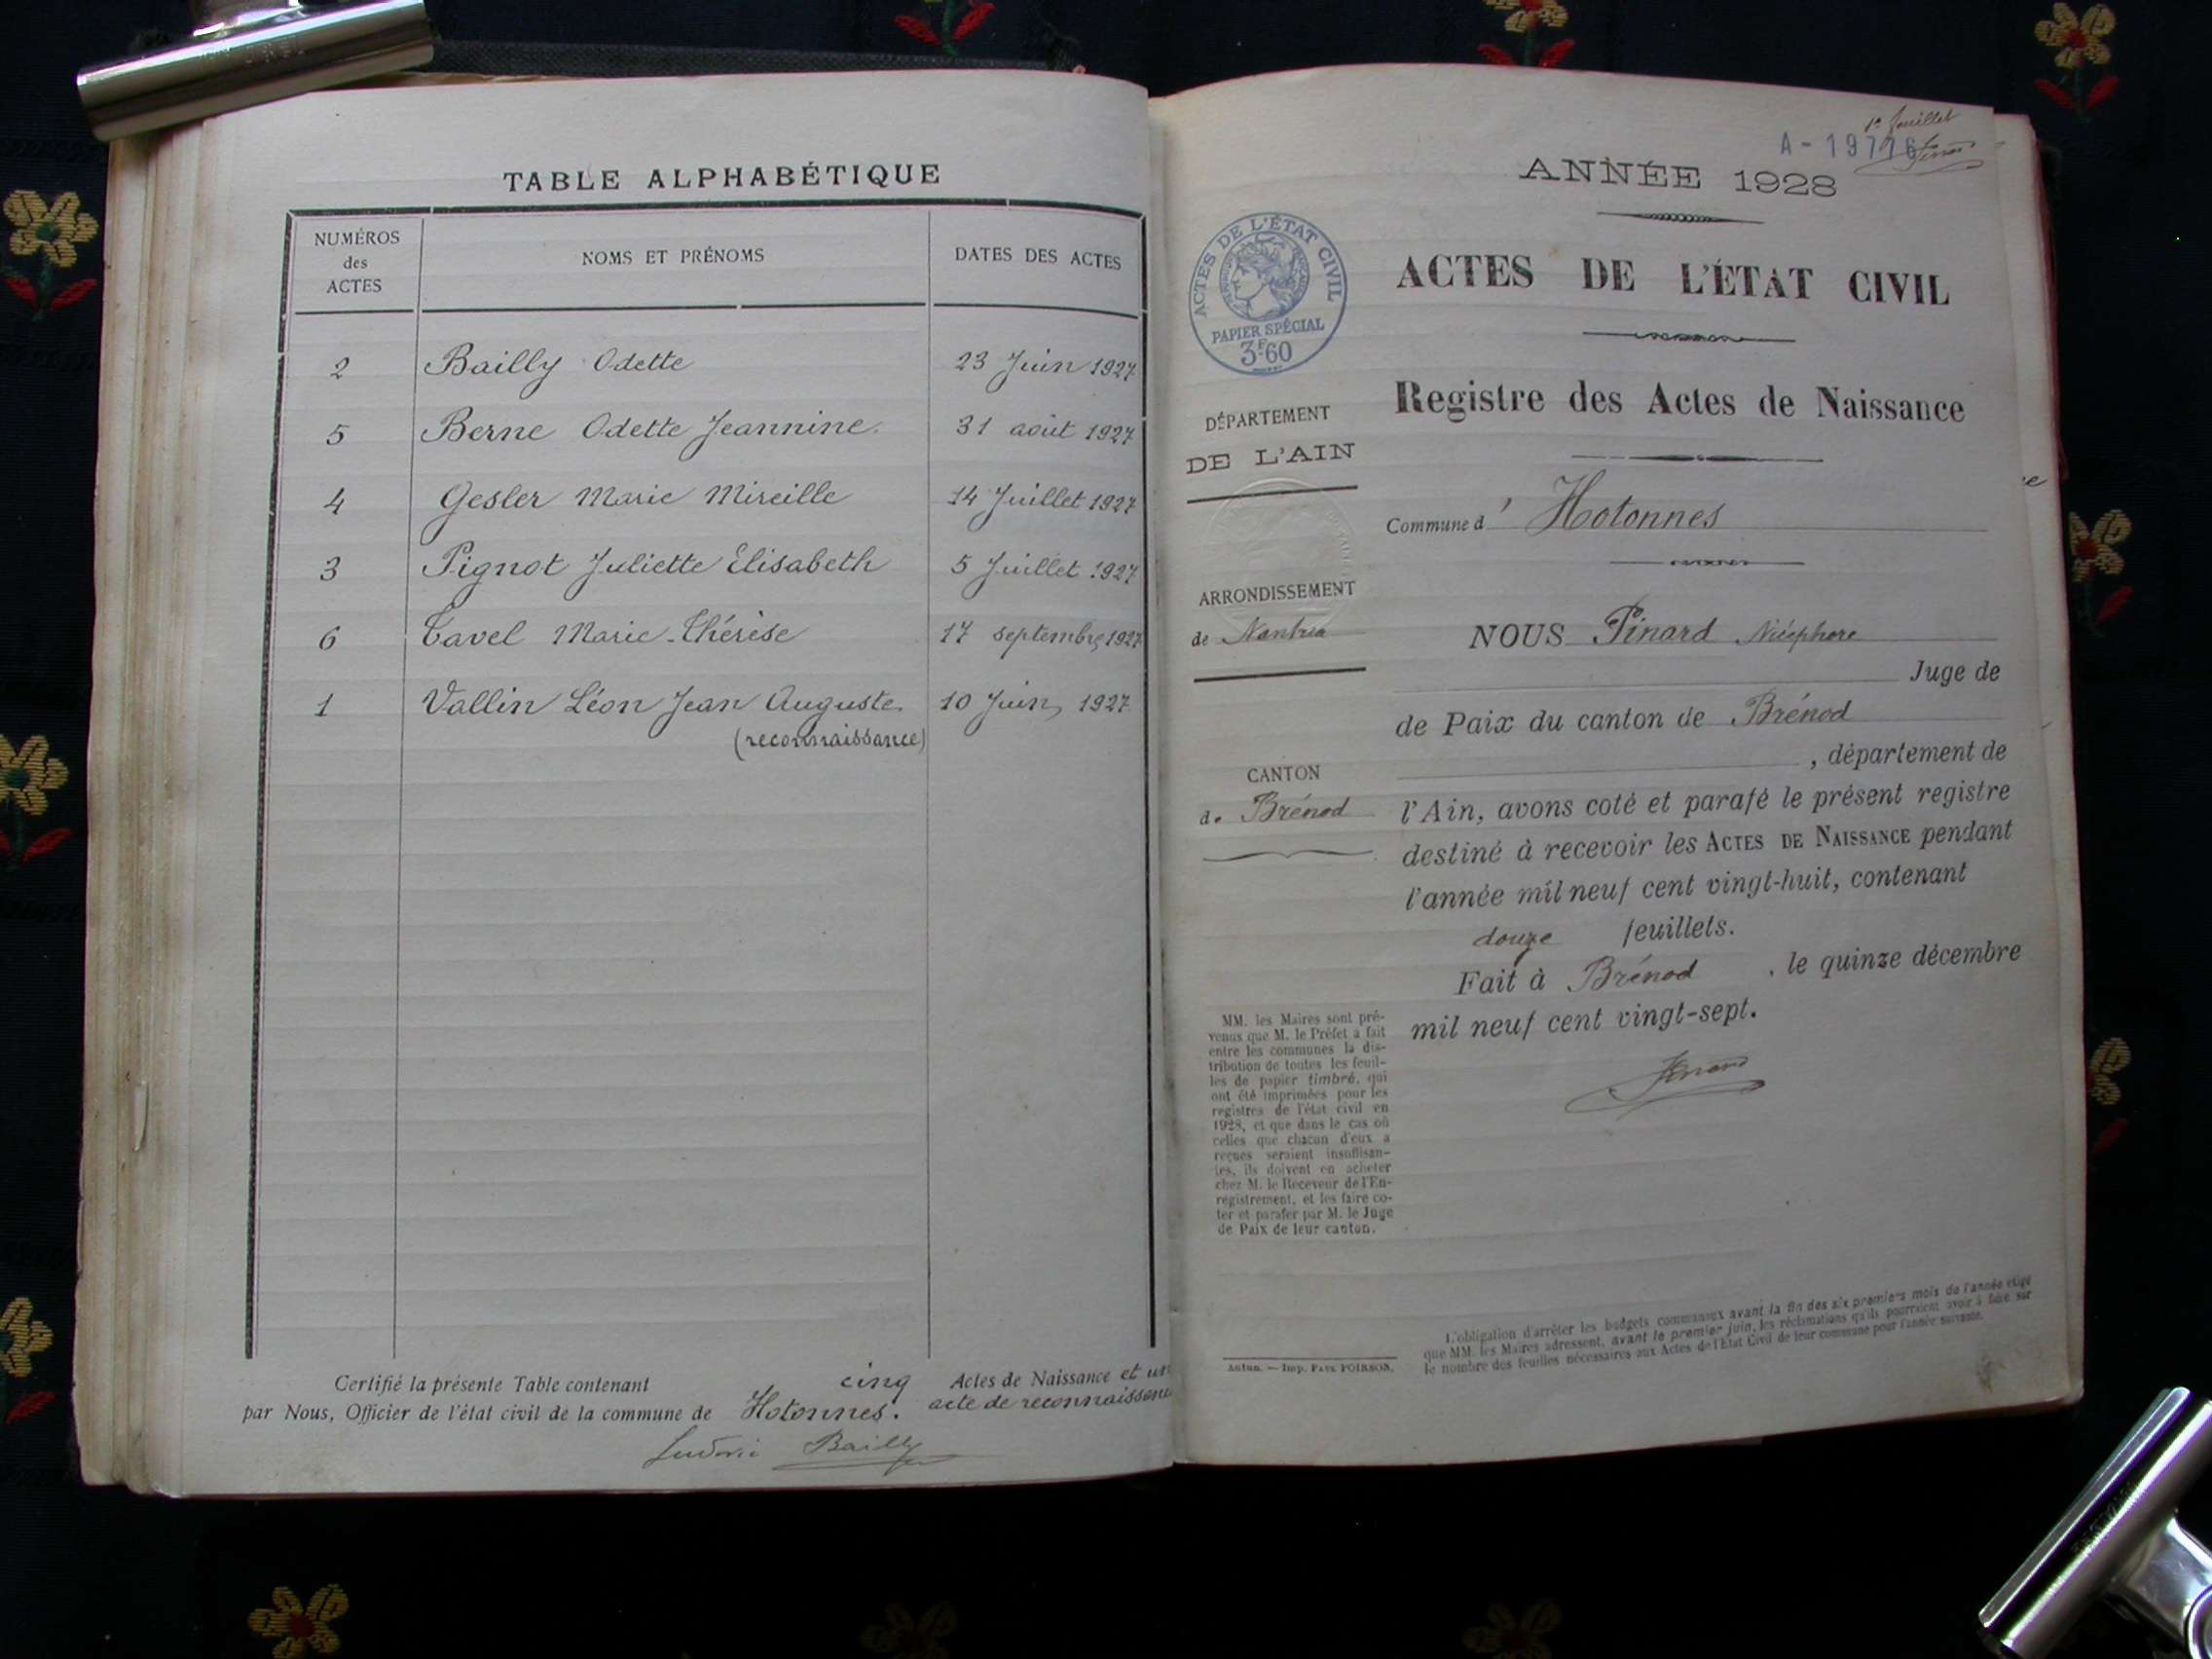 TABLE ALPHABÉTIQUE
NUMÉROS
des
ACTES
NOMS ET PRÉNOMS
DATES DES ACTES
2 Bailly Odette 23 Juin 1927
5 Berne Odette Jeannine. 31 août 1927
4 Gesler Marie Mireille 14 Juillet 1927
3 Pignot Juliette Elisabeth 5 Juillet 1927
6 Tavel Marie-Thérèse 17 septembre 1927
1 Vallin Léon Jean Auguste 10 Juin 1927
(reconnaissance)
Certifié la présente Table contenant cinq Actes de Naissance et un
par Nous, Officier de l'état civil de la commune de Hotonnes. acte de reconnaissance
Ludovic Bailly
1er feuillet
A-19776
ANNÉE 1928
ACTES DE L'ÉTAT CIVIL
PAPIER SPÉCIAL
3F60
ACTES DE L'ÉTAT CIVIL
Registre des Actes de Naissance
DÉPARTEMENT
DE L'AIN
Commune d' Hotonnes
ARRONDISSEMENT
de Nantua
CANTON
de Brénod
NOUS Pinard Nicéphore
Juge de
de Paix du canton de Brénod
, département de
l'Ain, avons coté et parafé le présent registre
destiné à recevoir les ACTES DE NAISSANCE pendant
l'année mil neuf cent vingt-huit, contenant
douze feuillets.
Fait à Brénod, le quinze décembre
mil neuf cent vingt-sept.
MM. les Maires sont pré-
venus que M. le Préfet a fait
entre les communes la dis-
tribution de toutes les feuil-
les de papier timbré, qui
ont été imprimées pour les
registres de l'état civil en
1928, et que dans le cas où
celles que chacun d'eux a
reçues seraient insuffisan-
tes, ils doivent en acheter
chez M. le Receveur de l'En-
registrement, et les faire co-
ter et parafer par M. le Juge
de Paix de leur canton.
Autun. — Imp. PAUL POIRSON.
L'obligation d'arrêter les budgets communaux avant la fin des six premiers mois de l'année exige
que MM. les Maires adressent, avant le premier juin, les réclamations qu'ils pourraient avoir à faire sur
le nombre des feuilles nécessaires aux Actes de l'Etat Civil de leur commune pour l'année suivante.